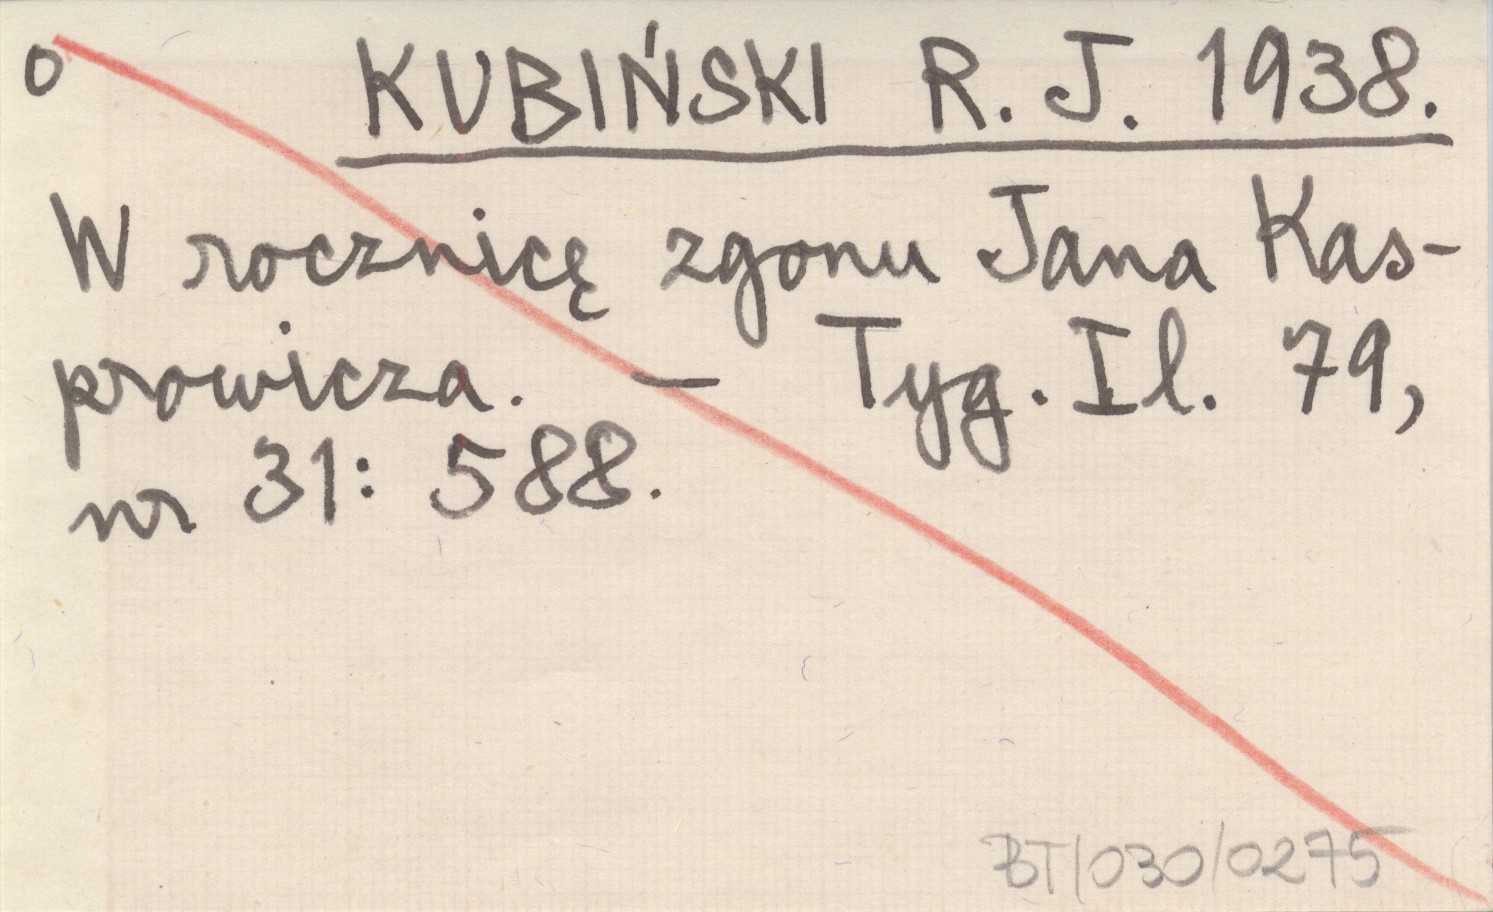 o KUBIŃSKI R. J. 1938.
W rocznicę zgonu Jana Kas-
prowicza. — Tyg. Il. 79,
nr 31: 588.
BT/030/0275